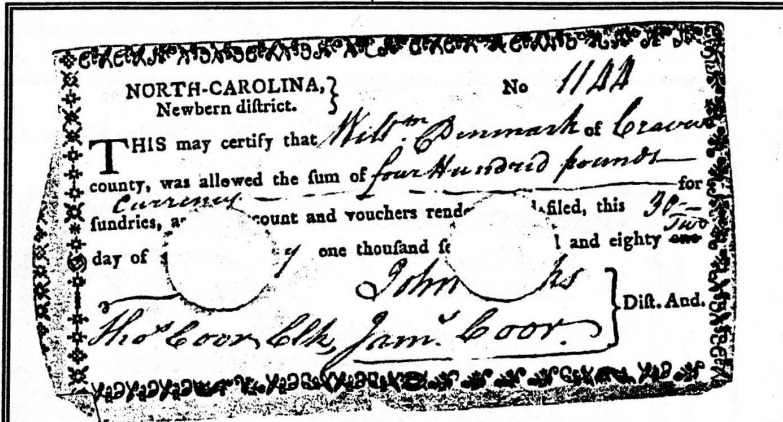 NORTH-CAROLINA, No 1144
Newbern diſtrict.
THIS may certify that Willm. Denmark of Craven
county, was allowed the ſum of four Hundred pounds
Currency for
ſundries, count and vouchers rend filed, this 30
Two
day of y one thouſand and eighty one
John
Thos Coor Clk, Jams. Coor. Diſt. Aud.